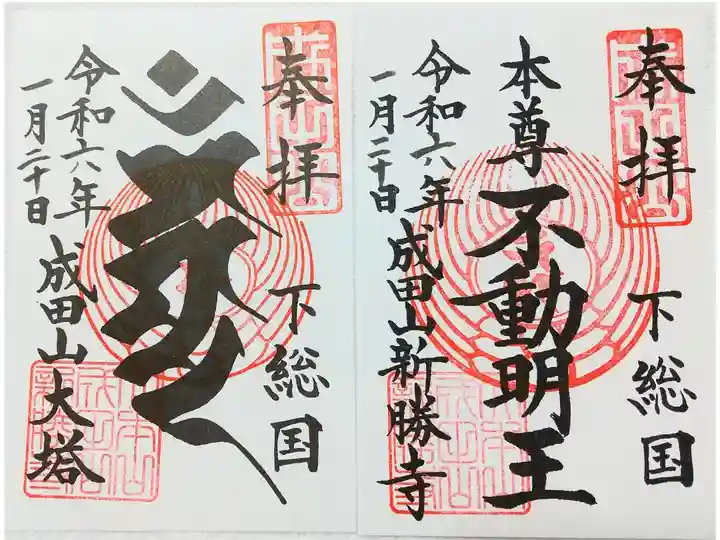 奉拝
下総国
本尊 不動明王
令和六年
一月二十日
成田山新勝寺
奉拝
下総国
令和六年
一月二十日
成田山大塔